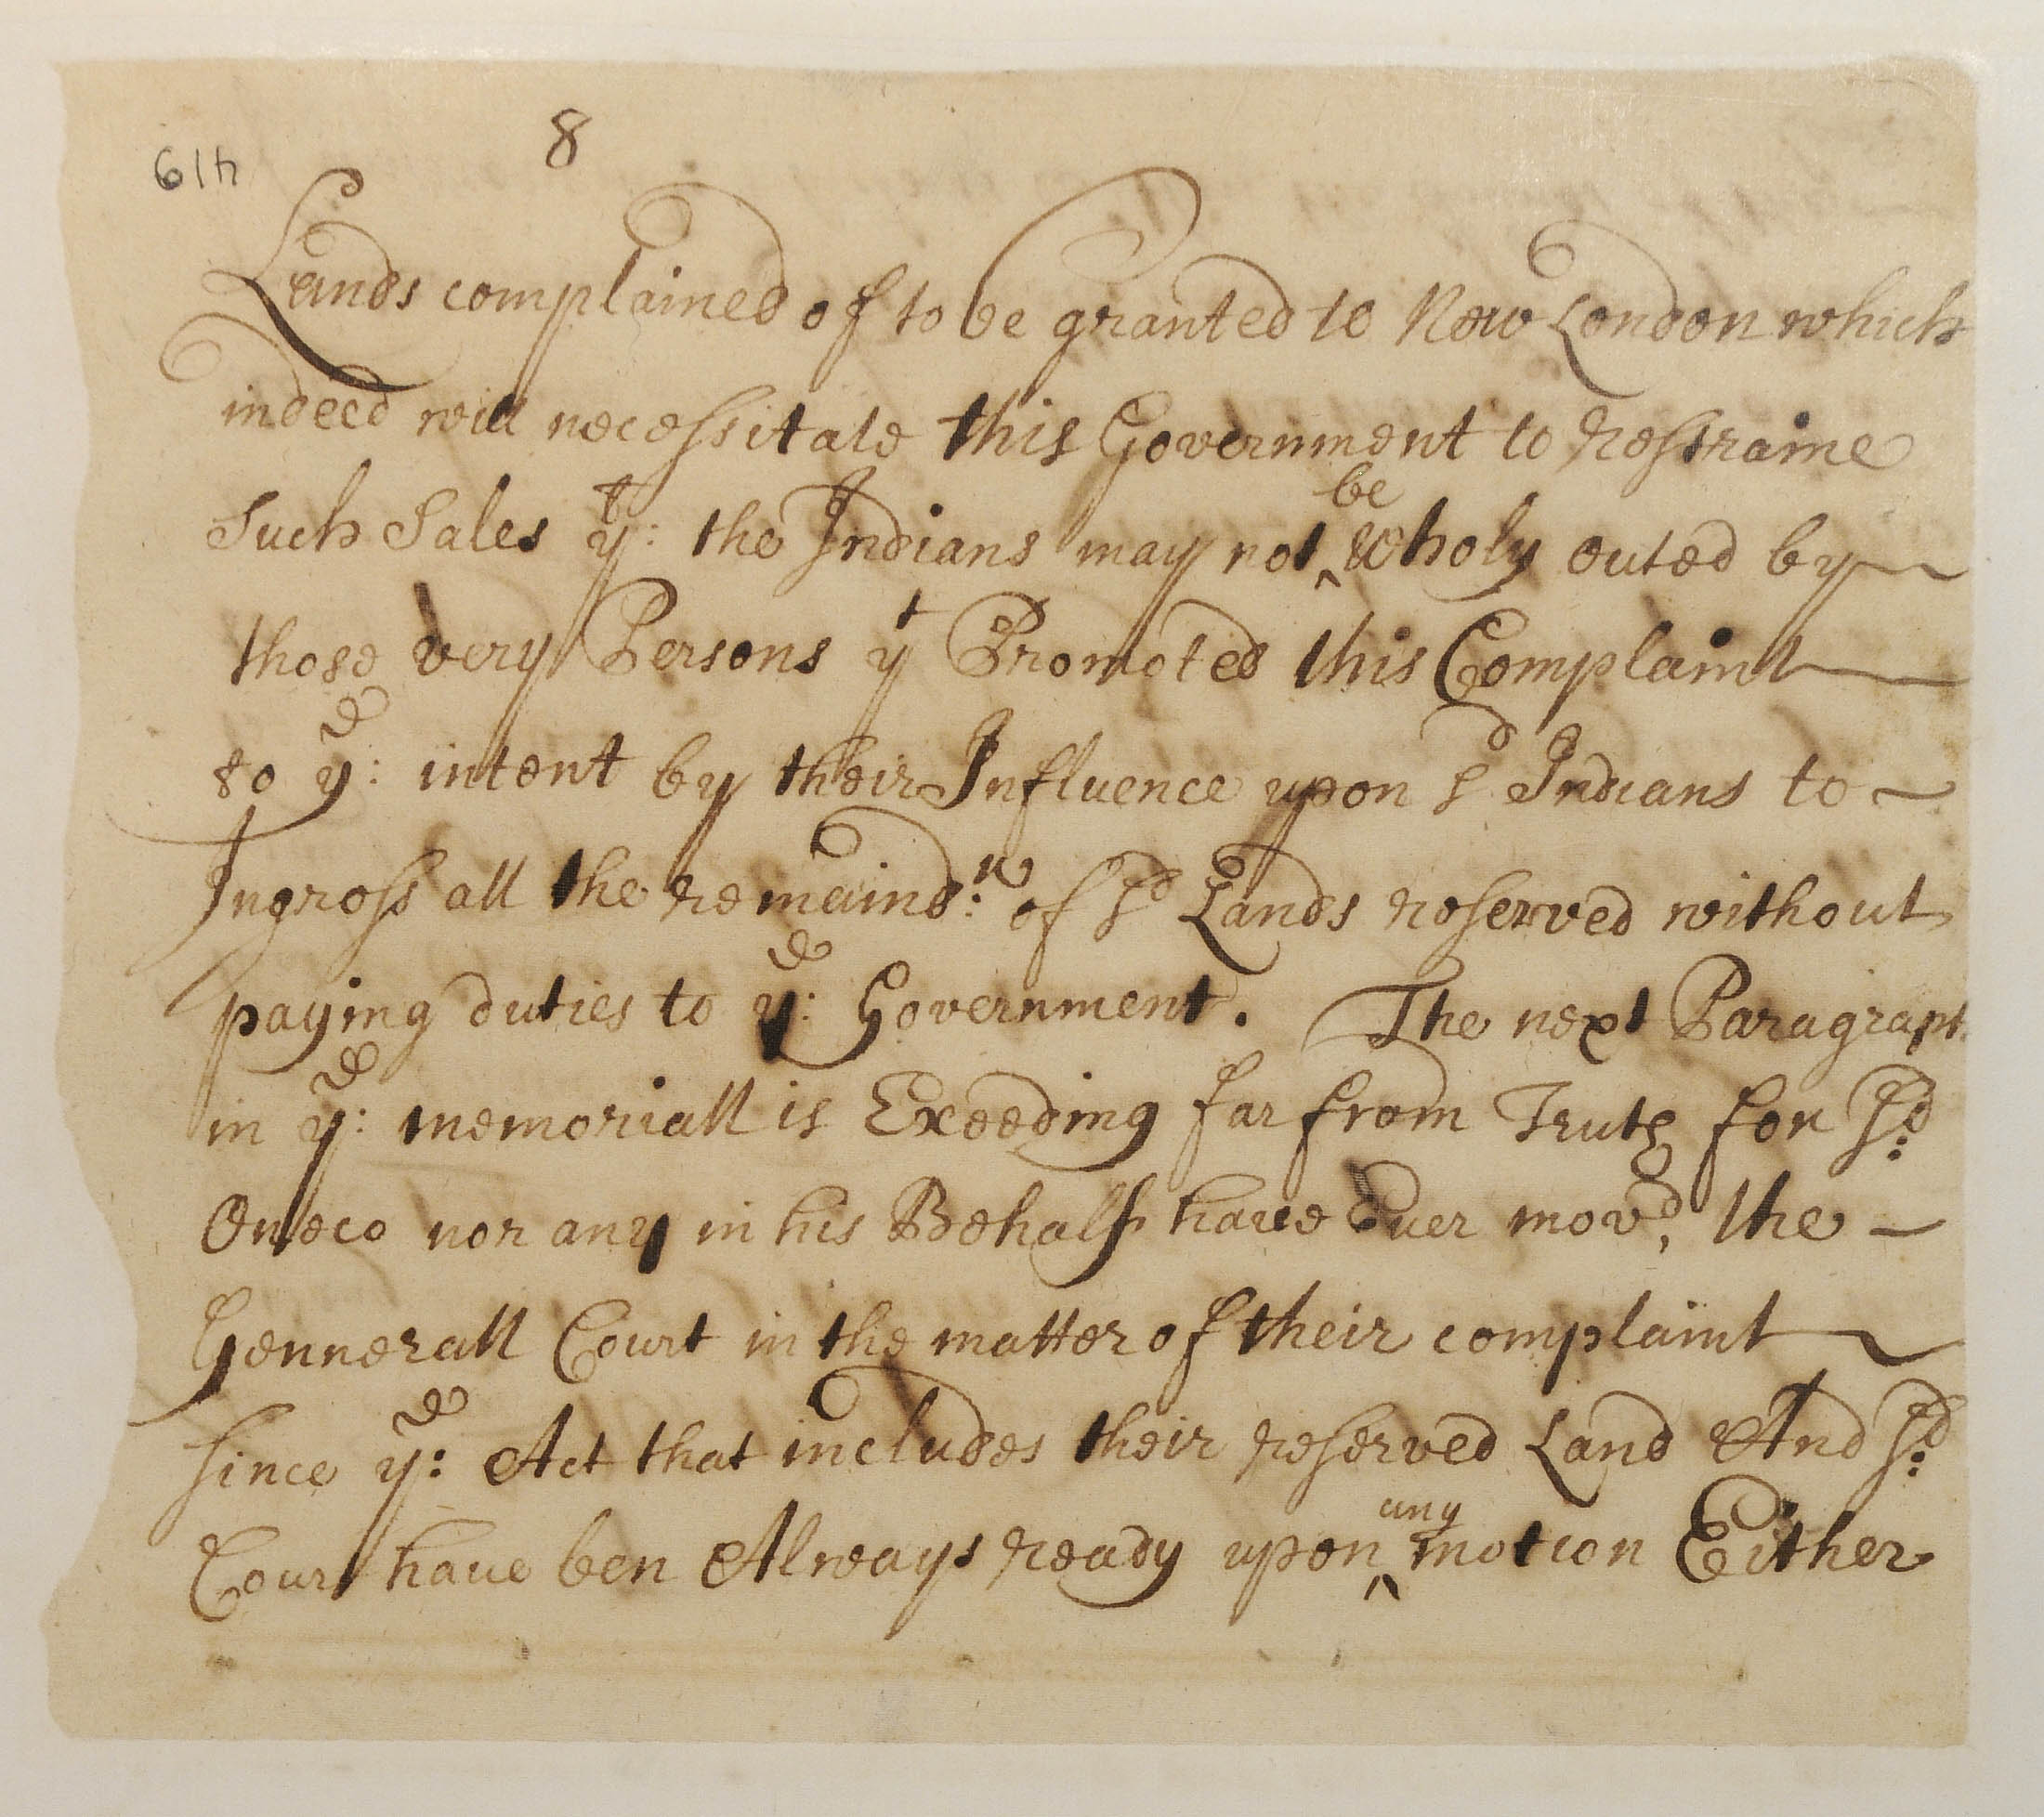 8
619
Lands complained of to be granted to New London which
indeed will necessitate this Government to restraine
Such Sales yt: the Indians may not ^be wholy outed by
those very Persons yt Promoted this Complaint
to ye: intent by their Influence upon sd Indians to
Ingross all the remaindr: of sd Lands reserved without
paying duties to ye: Government. The next Paragraph
in ye: memoriall is Exeeding far from Truth for sd:
Oneco nor any in his Behalf have Ever movd, the
Gennerall Court in the matter of their complaint
since ye: Act that includes their reserved Land And sd:
Court have ben Always ready upon ^any motion Either